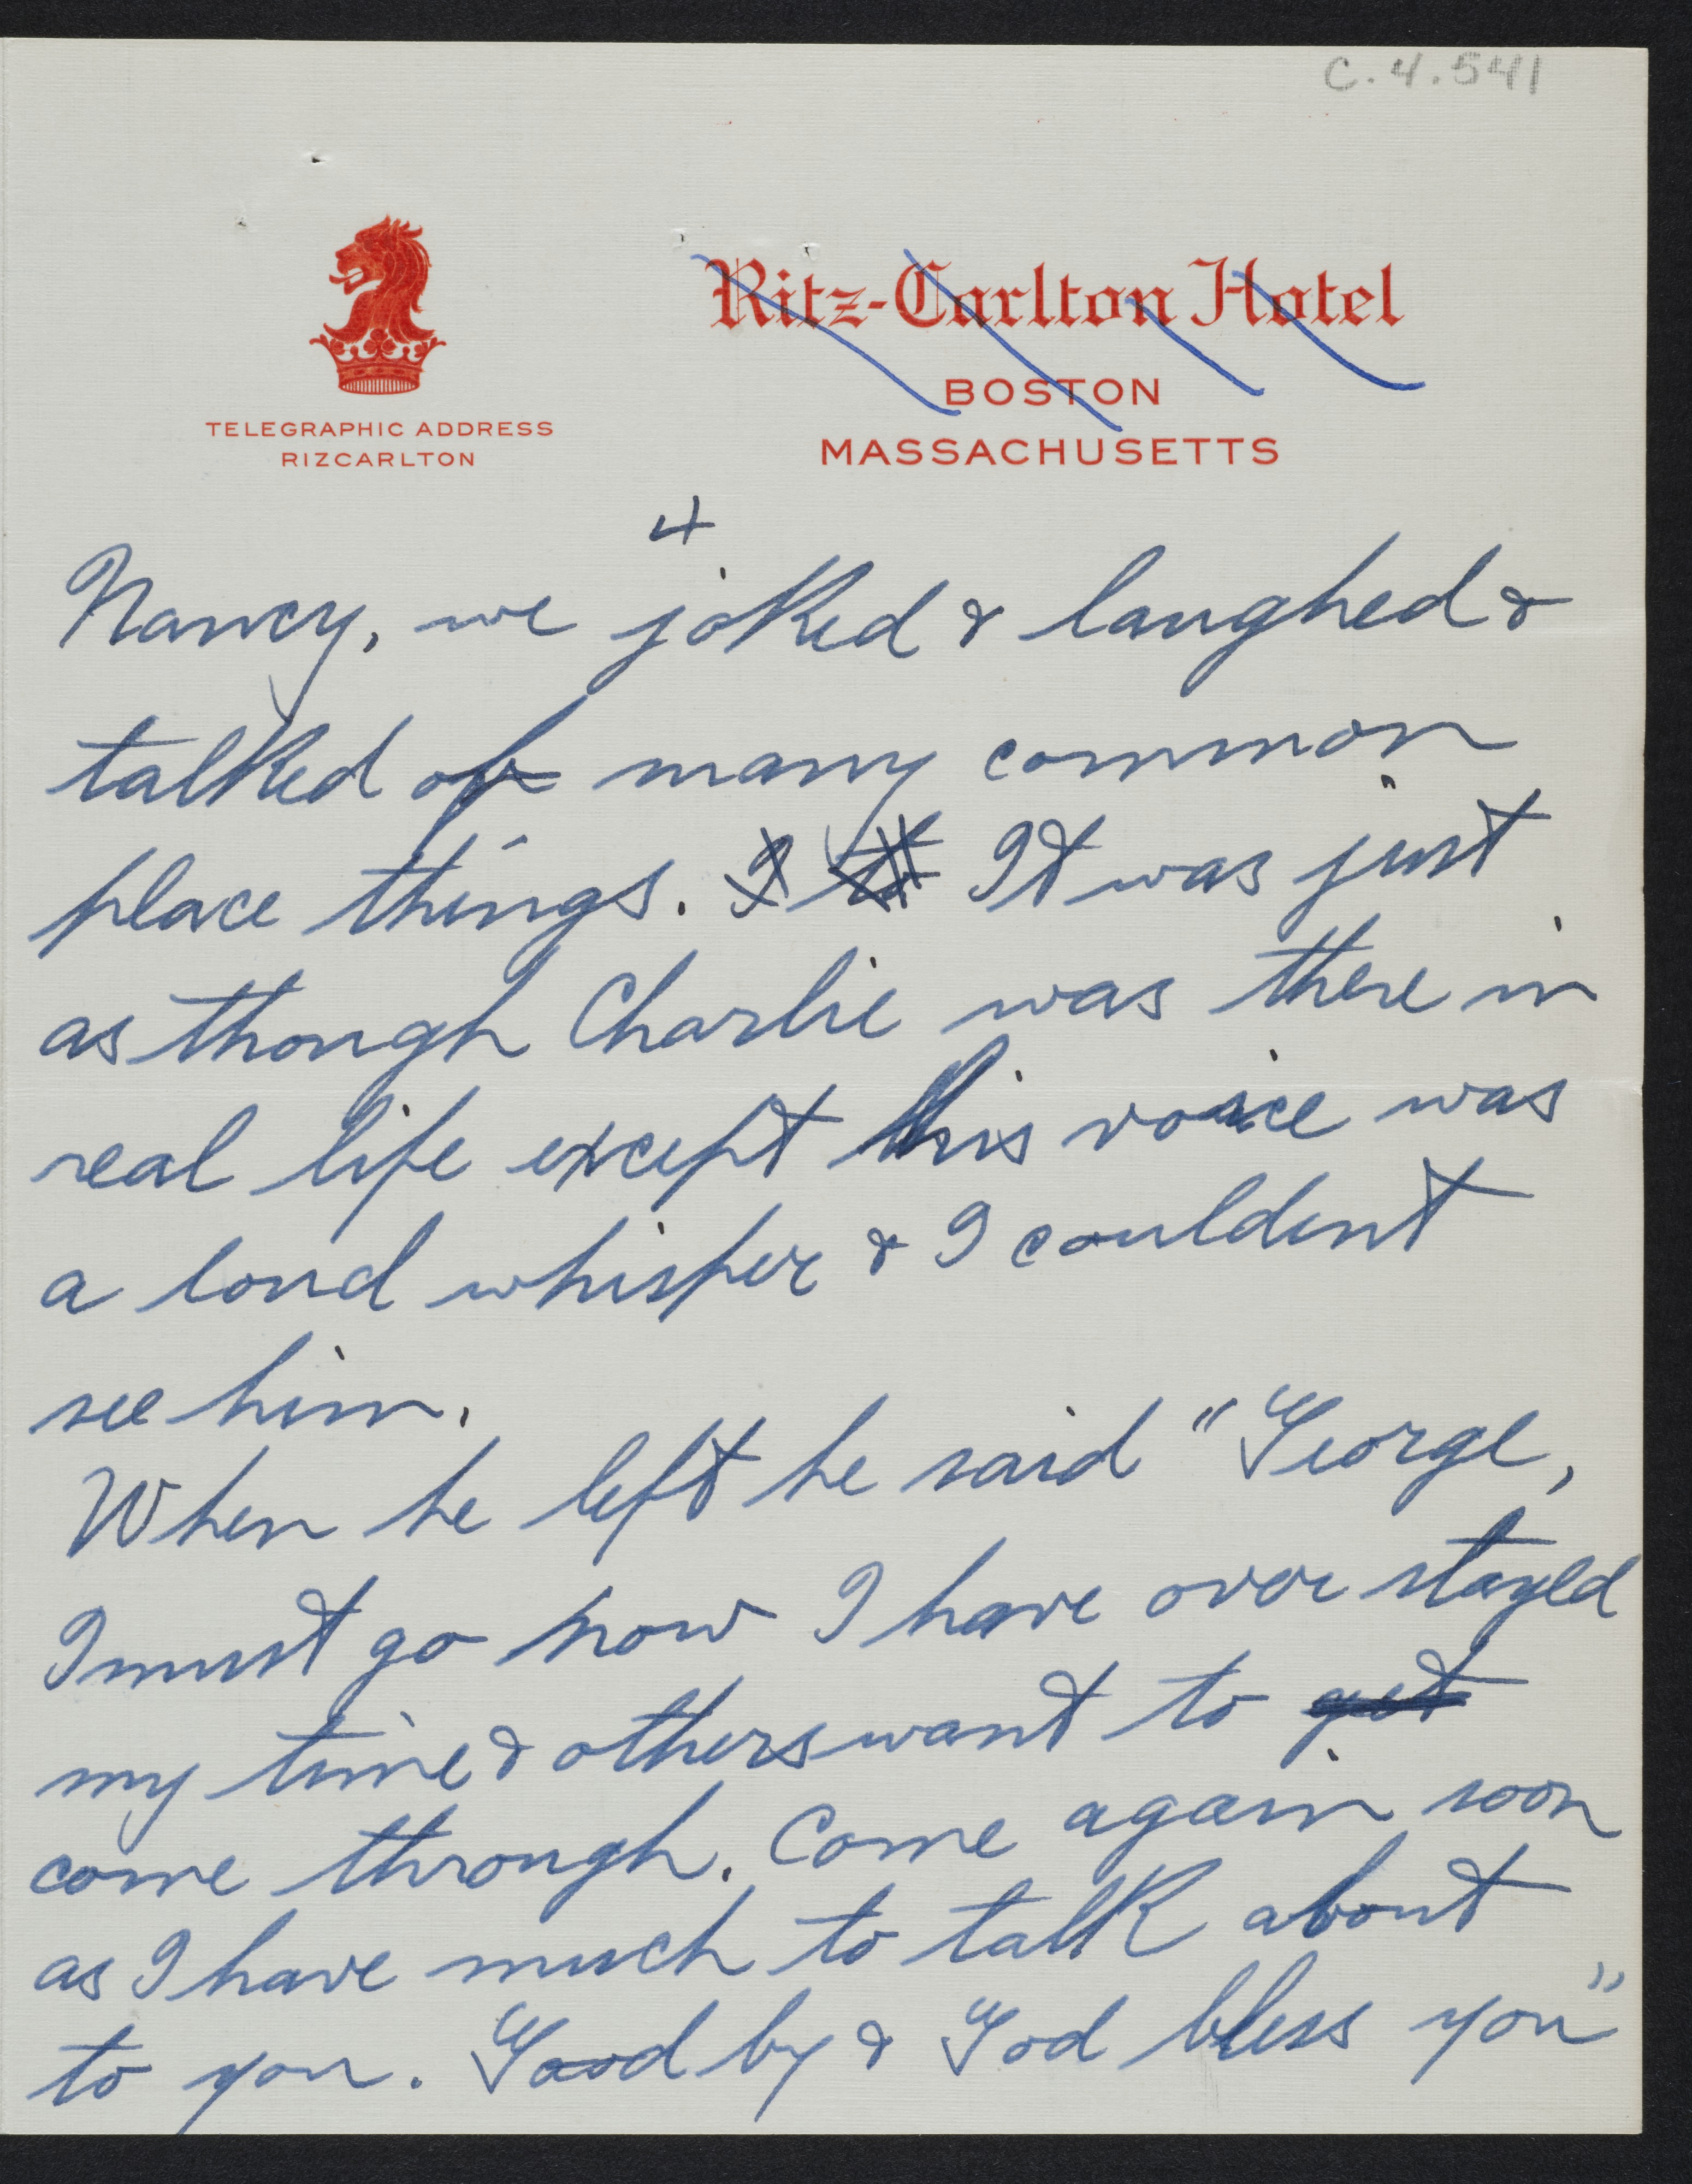 C.4.541
Ritz-Carlton Hotel
BOSTON
MASSACHUSETTS
TELEGRAPHIC ADDRESS
RIZCARLTON
4
Nancy, we joked & laughed &
talked of many common
place things. I It was just
as though Charlie was there in
real life except his voice was
a loud whisper & I couldent
see him.
When he left he said "George,
I must go now I have over stayed
my time & others want to get
come through. Come again soon
as I have much to talk about
to you. Good by & God bless you"